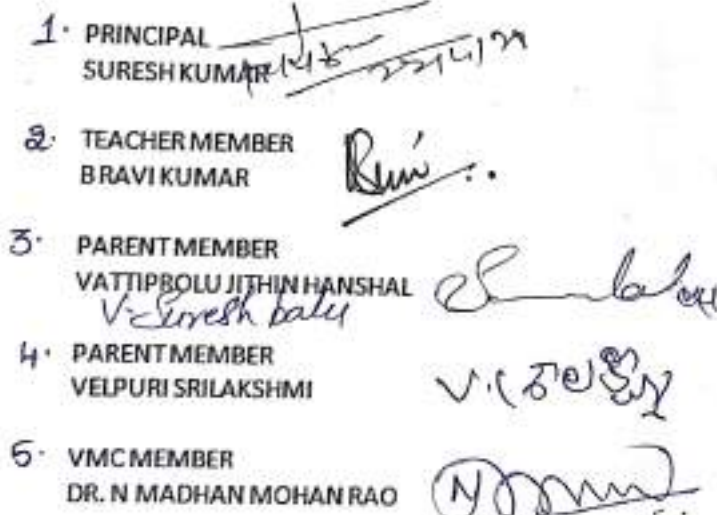 1. PRINCIPAL
SURESH KUMAR
2. TEACHER MEMBER
B RAVI KUMAR
3. PARENT MEMBER
VATTIPROLU JITHIN HANSHAL
V. Suresh babu
4. PARENT MEMBER
VELPURI SRILAKSHMI
5. VMC MEMBER
DR. N MADHAN MOHAN RAO